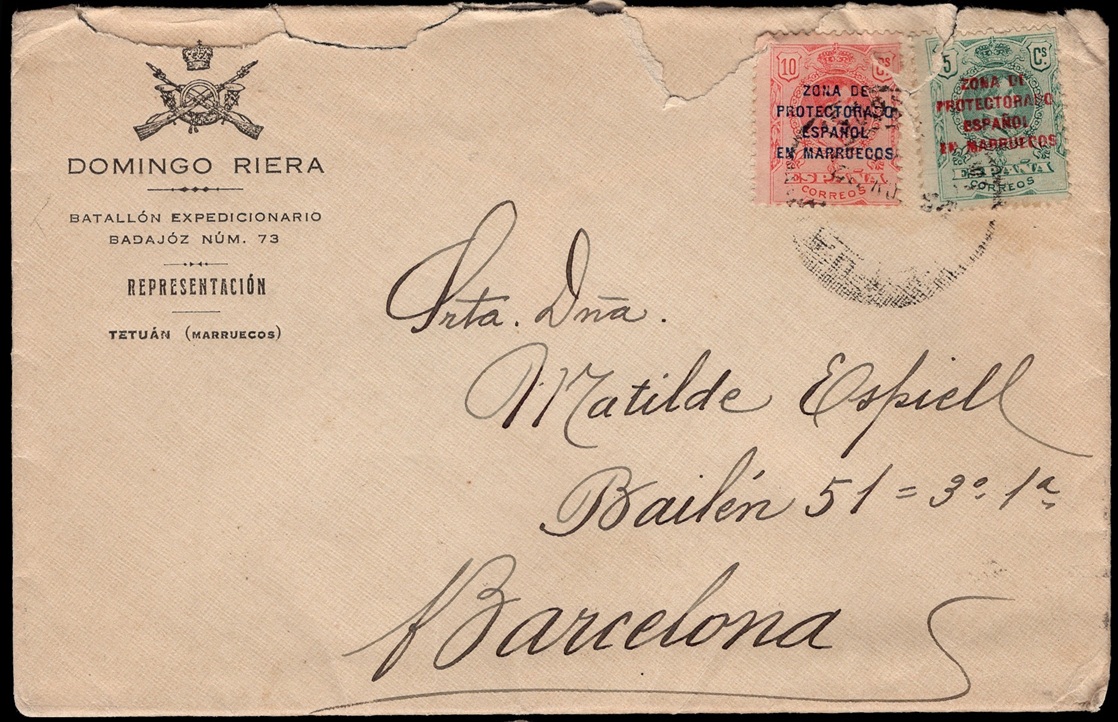 DOMINGO RIERA
BATALLÓN EXPEDICIONARIO
BADAJÓZ NÚM. 73
REPRESENTACIÓN
TETUÁN (MARRUECOS)
10 Cs
ZONA DE
PROTECTORADO
ESPAÑOL
EN MARRUECOS
ESPAÑA
CORREOS
5 Cs.
ZONA DE
PROTECTORADO
ESPAÑOL
EN MARRUECOS
CORREOS
Srta. Dña.
Matilde Espiell
Bailén 51 = 3º 1ª
Barcelona